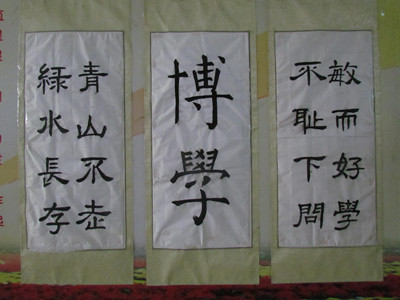 敏而好學
不耻下問
博學
青山不老
緑水長存